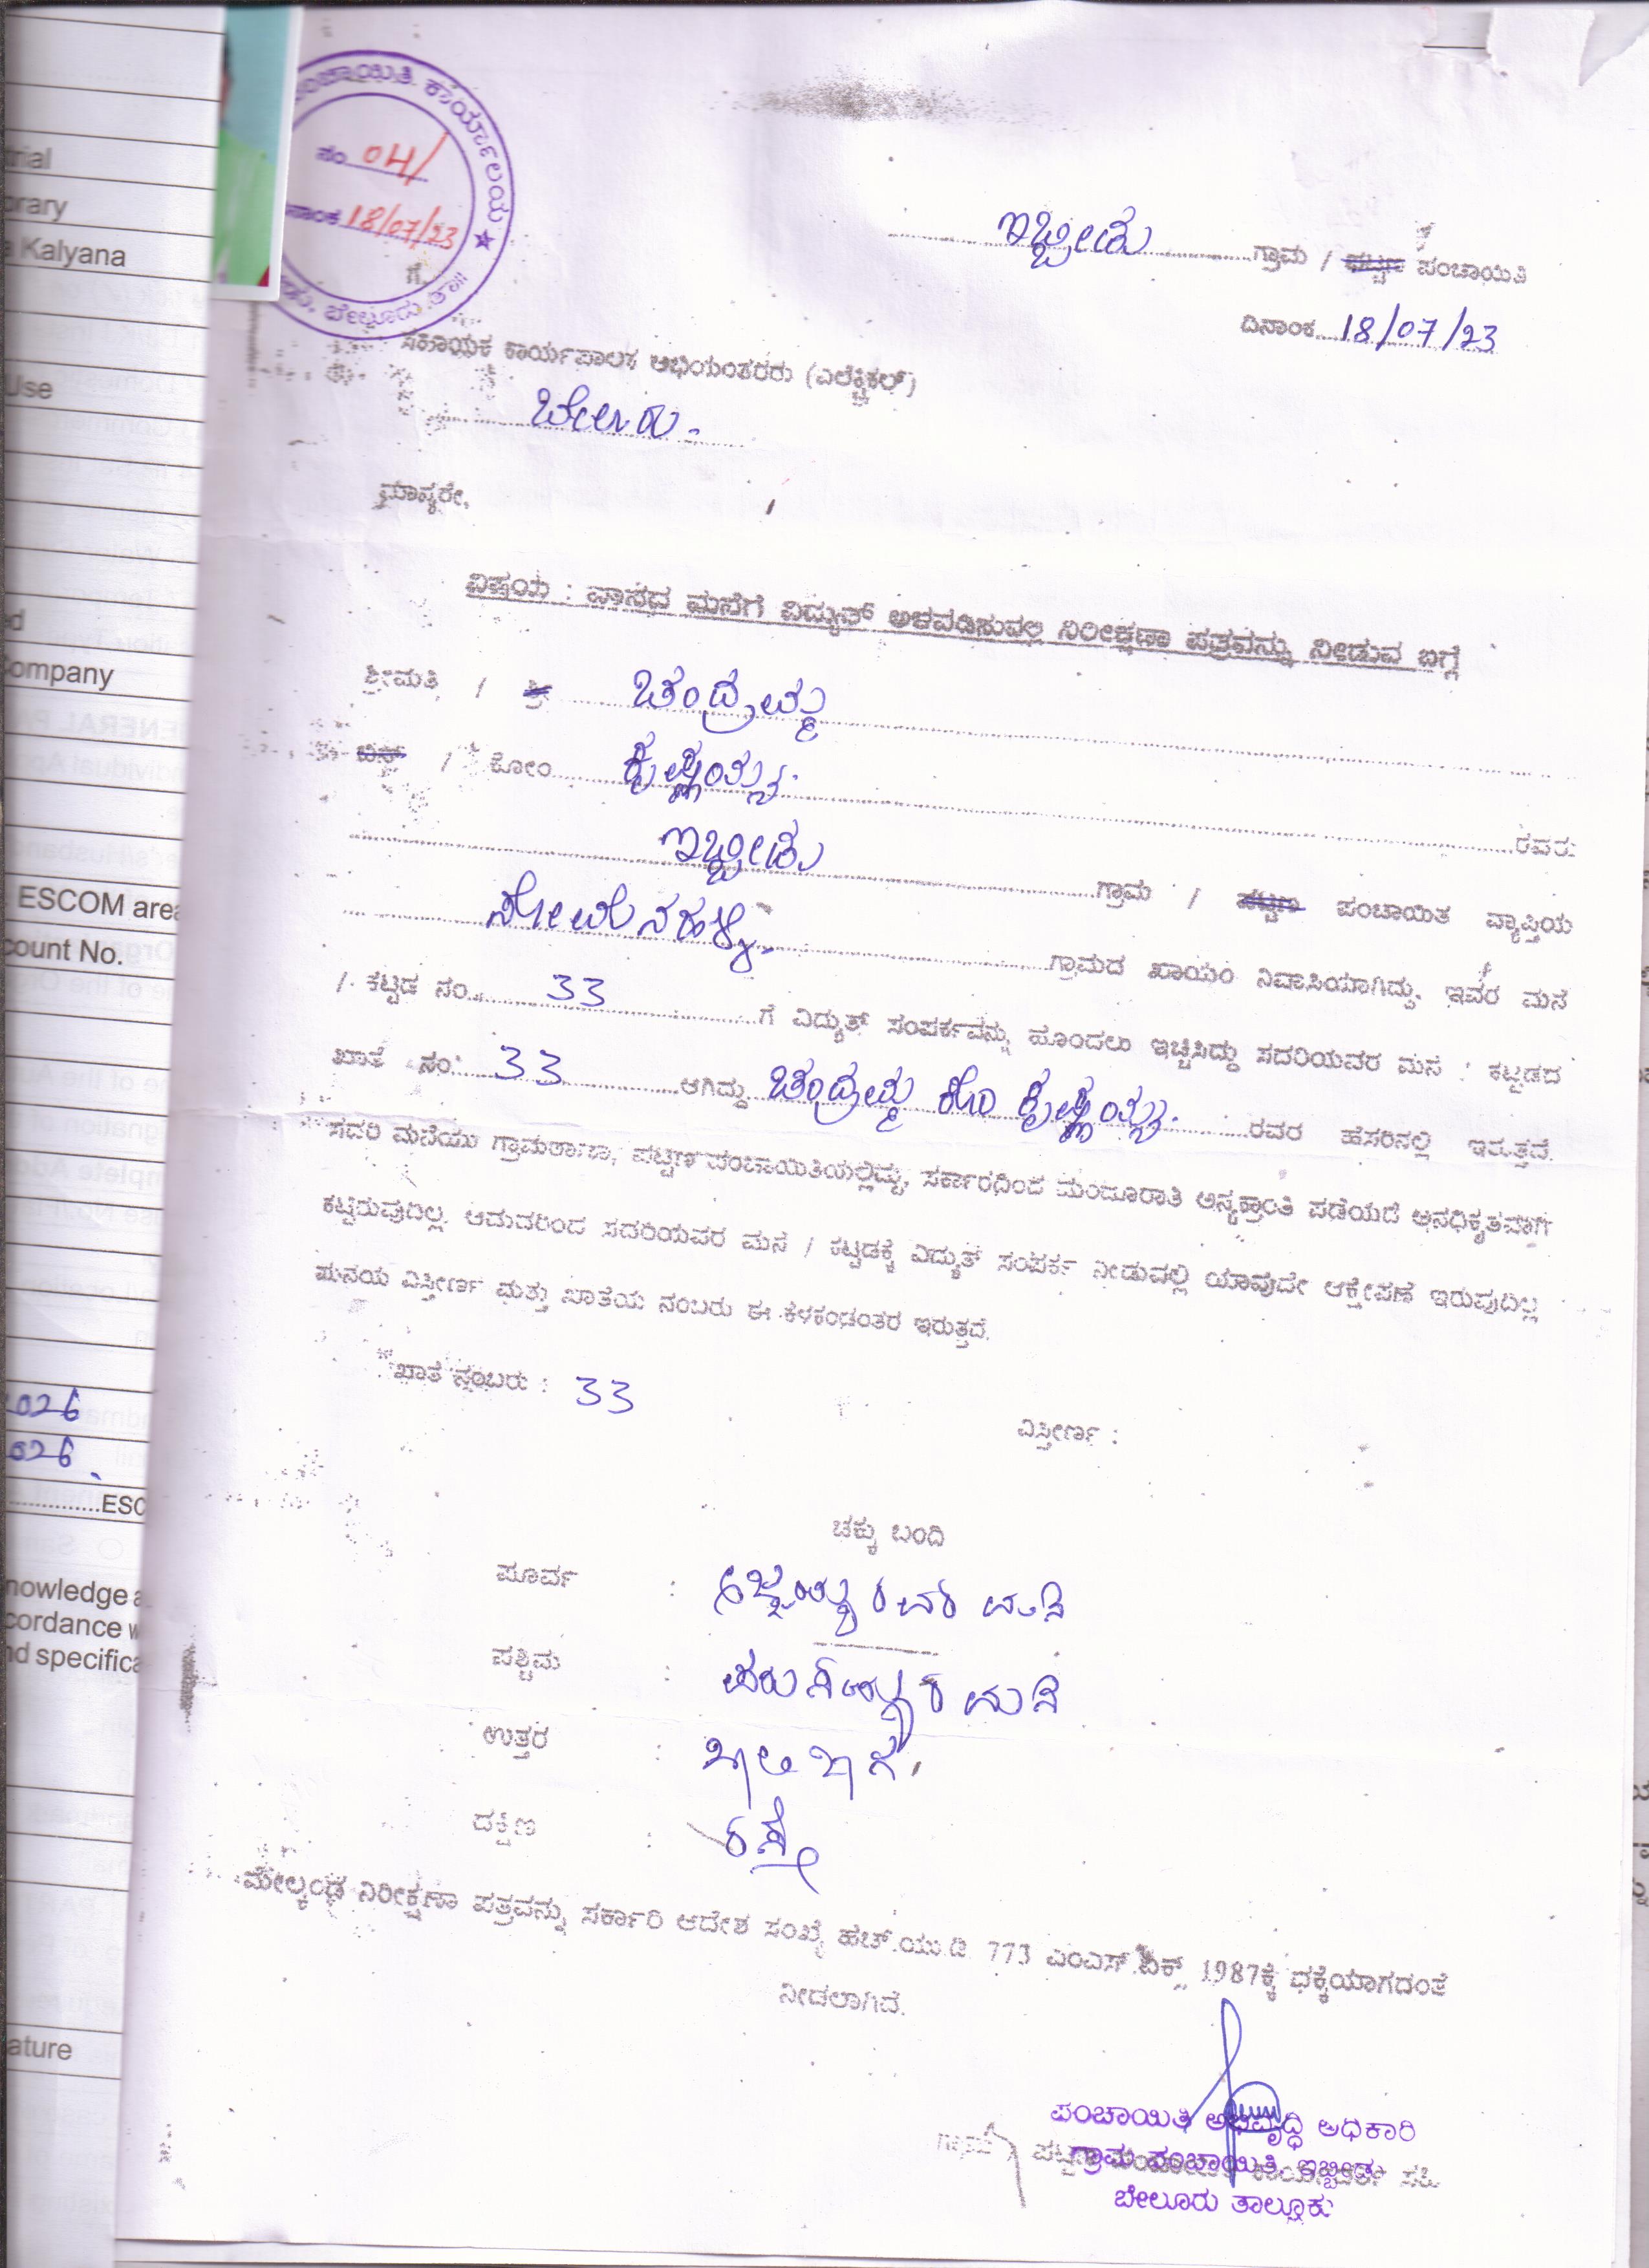 ಪಂಚಾಯಿತಿ ಕಾರ್ಯಾಲಯ
ನಂ. 04/
ದಿನಾಂಕ 18/07/23
ಬೇಲೂರು ತಾ||
ಇಬ್ಬೀಡು ಗ್ರಾಮ / ಪಟ್ಟಣ ಪಂಚಾಯಿತಿ
ದಿನಾಂಕ 18/07/23
ಗೆ,
ಸಹಾಯಕ ಕಾರ್ಯಪಾಲಕ ಅಭಿಯಂತರರು (ಎಲೆಕ್ಟ್ರಿಕಲ್)
ಬೇಲೂರು.
ಮಾನ್ಯರೇ,
ವಿಷಯ : ವಾಸದ ಮನೆಗೆ ವಿದ್ಯುತ್ ಅಳವಡಿಸುವಲ್ಲಿ ನಿರೀಕ್ಷಣಾ ಪತ್ರವನ್ನು ನೀಡುವ ಬಗ್ಗೆ
ಶ್ರೀಮತಿ / ಶ್ರೀ ಚಂದ್ರಮ್ಮ
ಬಿನ್ / ಕೋಂ ಕೃಷ್ಣಯ್ಯ. ರವರು
ಇಬ್ಬೀಡು ಗ್ರಾಮ / ಪಟ್ಟಣ ಪಂಚಾಯಿತ ವ್ಯಾಪ್ತಿಯ
ಗ್ರಾಮದ ಖಾಯಂ ನಿವಾಸಿಯಾಗಿದ್ದು, ಇವರ ಮನೆ
/ ಕಟ್ಟಡ ನಂ. 33 ಗೆ ವಿದ್ಯುತ್ ಸಂಪರ್ಕವನ್ನು ಹೊಂದಲು ಇಚ್ಛಿಸಿದ್ದು ಸದರಿಯವರ ಮನೆ / ಕಟ್ಟಡದ
ಖಾತೆ ನಂ 33 ಆಗಿದ್ದು ಚಂದ್ರಮ್ಮ ಕೋಂ ಕೃಷ್ಣಯ್ಯ. ರವರ ಹೆಸರಿನಲ್ಲಿ ಇರುತ್ತವೆ.
ಸದರಿ ಮನೆಯು ಗ್ರಾಮಠಾಣಾ, ಪಟ್ಟಣ ಪಂಚಾಯಿತಿಯಲ್ಲಿದ್ದು, ಸರ್ಕಾರದಿಂದ ಮಂಜೂರಾತಿ ಅನ್ಯಕ್ರಾಂತಿ ಪಡೆಯದೆ ಅನಧಿಕೃತವಾಗಿ
ಕಟ್ಟಿರುವುದಿಲ್ಲ. ಆದುದರಿಂದ ಸದರಿಯವರ ಮನೆ / ಕಟ್ಟಡಕ್ಕೆ ವಿದ್ಯುತ್ ಸಂಪರ್ಕ ನೀಡುವಲ್ಲಿ ಯಾವುದೇ ಆಕ್ಷೇಪಣೆ ಇರುವುದಿಲ್ಲ
ಮನೆಯ ವಿಸ್ತೀರ್ಣ ಮತ್ತು ಖಾತೆಯ ನಂಬರು ಈ ಕೆಳಕಂಡಂತರ ಇರುತ್ತವೆ.
ಖಾತೆ ನಂಬರು : 33
ವಿಸ್ತೀರ್ಣ :
ಚಕ್ಕು ಬಂದಿ
ಪೂರ್ವ : ರವರ ಮನೆ
ಪಶ್ಚಿಮ : ಮನೆ
ಉತ್ತರ :
ದಕ್ಷಿಣ : ರಸ್ತೆ
ಮೇಲ್ಕಂಡ ನಿರೀಕ್ಷಣಾ ಪತ್ರವನ್ನು ಸರ್ಕಾರಿ ಆದೇಶ ಸಂಖ್ಯೆ ಹೆಚ್.ಯು.ಡಿ. 773 ಎಂಎಸ್ 1987ಕ್ಕೆ ಧಕ್ಕೆಯಾಗದಂತೆ
ನೀಡಲಾಗಿವೆ.
ಪಂಚಾಯಿತಿ ಅಭಿವೃದ್ಧಿ ಅಧಿಕಾರಿ
ಗ್ರಾಮ ಪಂಚಾಯಿತಿ, ಇಬ್ಬೀಡು
ಬೇಲೂರು ತಾಲ್ಲೂಕು
Kalyana
Use
Company
ESCOM area
count No.
2026
2026
ESC
nowledge
cordance